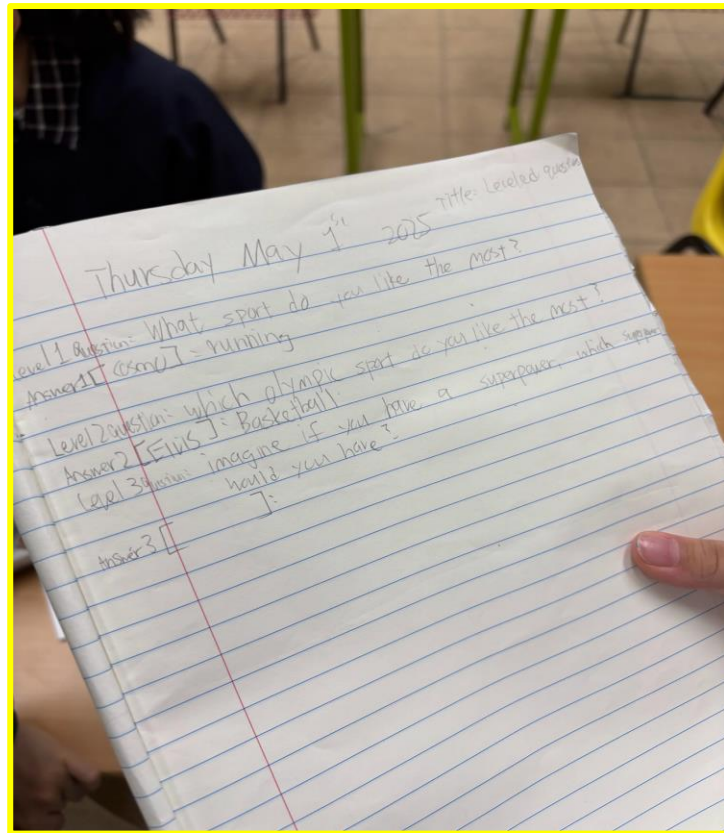 Title: Leveled question
Thursday May 1st 2025
Level 1 Question: What sport do you like the most?
Answer 1 [Cosmo] = running
Level 2 Question: which olympic sport do you like the most?
Answer 2 [Elvis]: Basketball.
Level 3 Question: imagine if you have a superpower, which
would you have?
Answer 3 [ ]: